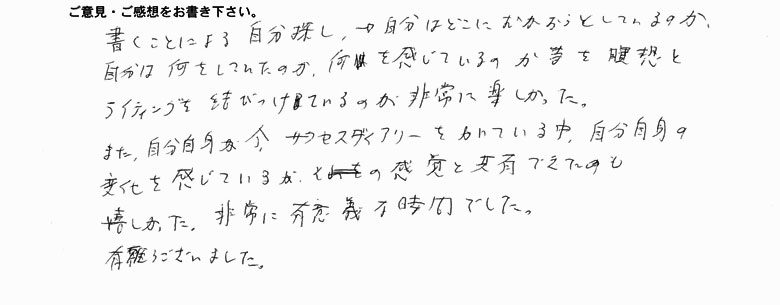 ご意見・ご感想をお書き下さい。
書くことによる自分探し,→自分はどこにむかおうとしているのか、
自分は何をしていたのか、何を感じているのか等を瞑想と
ライティングを結びつけているのが非常に楽しかった。
また、自分自身が今、サクセスダイアリーをかいている中、自分自身の
変化を感じているが、その感覚と共有できたのも
嬉しかった。非常に有意義な時間でした。
有難うございました。